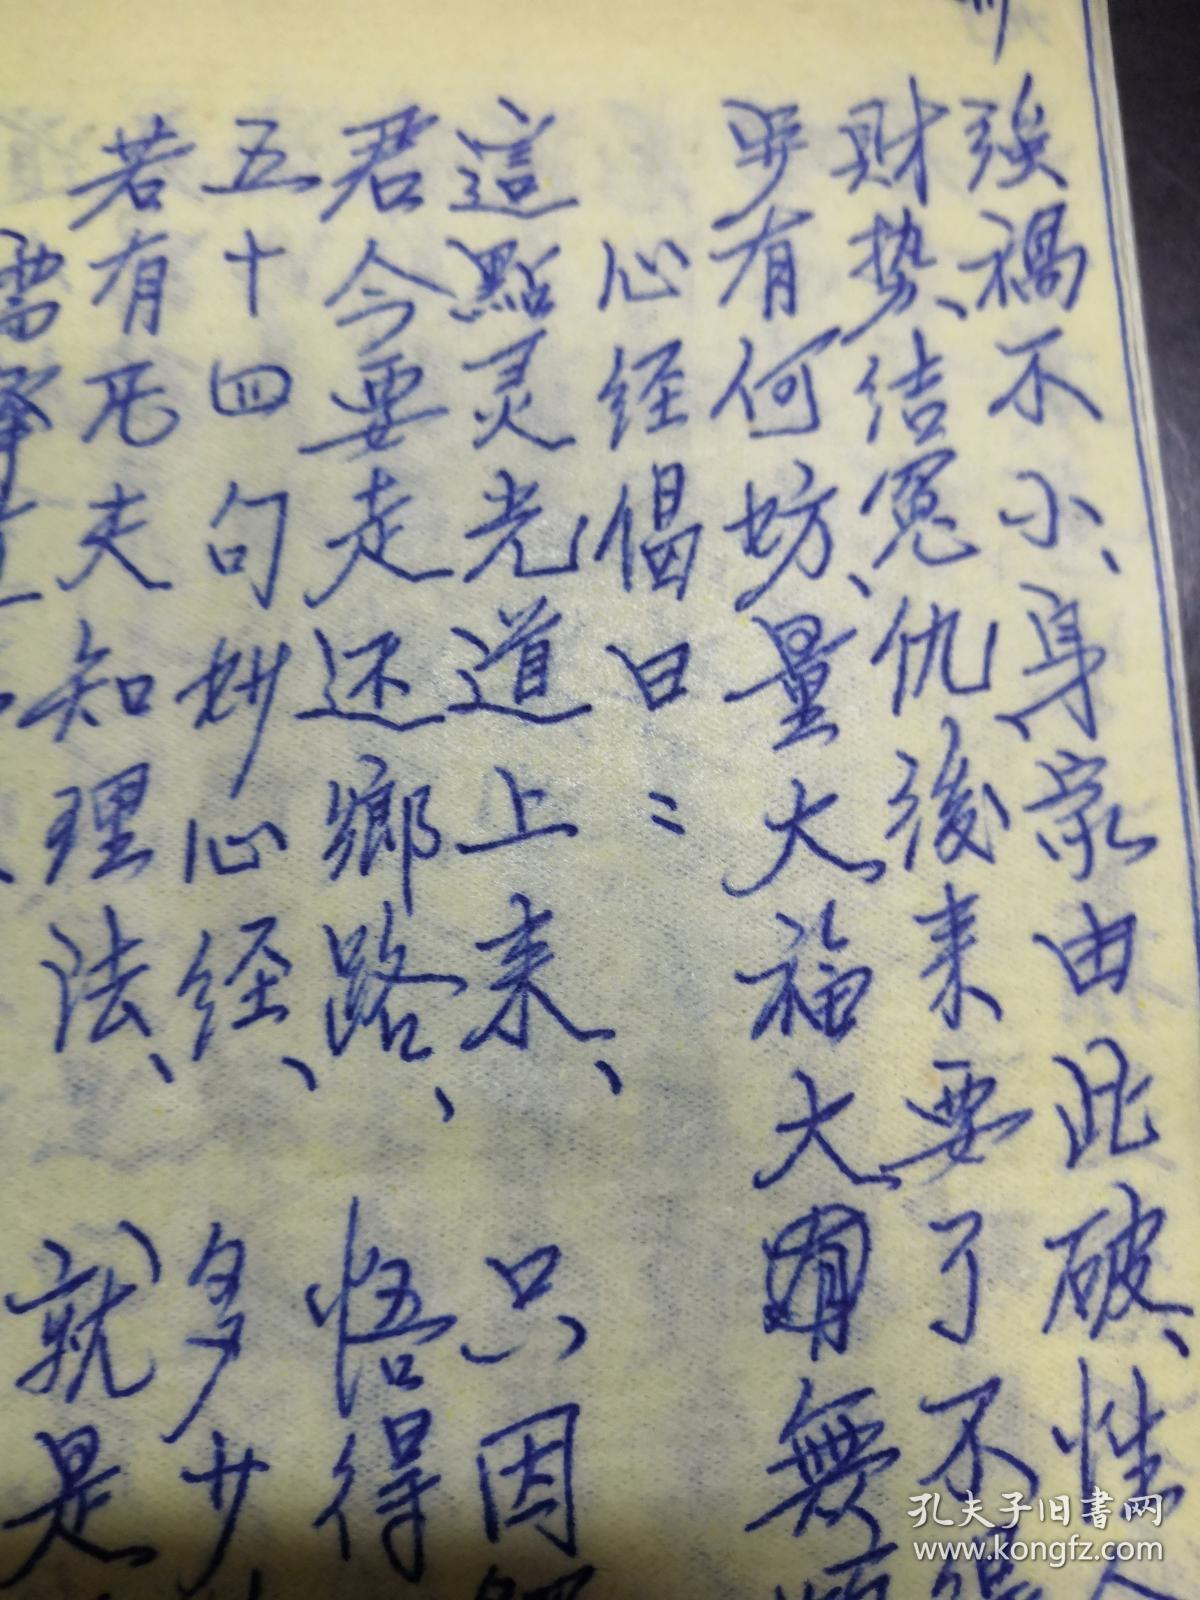 強禍不小、身家由此破、性
財势、结冤仇後来要了不得
步有何坊、量大福大有無
心经偈曰：
這點灵光道上来、只因
君今要走还鄉路、悟得
五十四句妙心经、多少
若有凡夫知理法、就是
孔夫子旧书网
www.kongfz.com